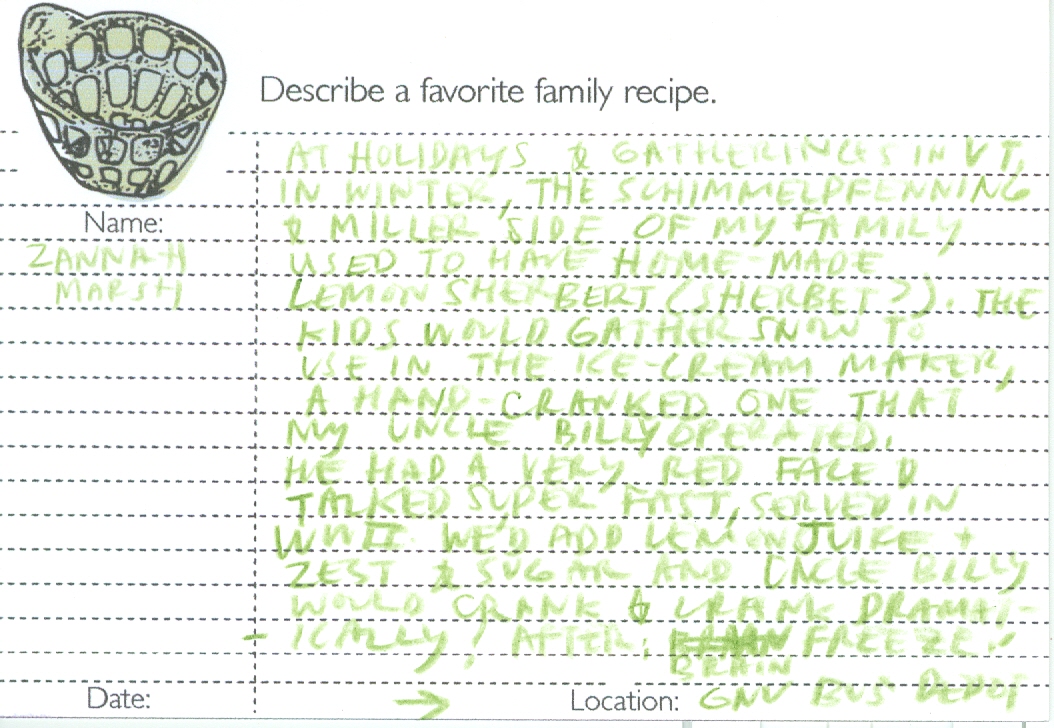 Describe a favorite family recipe.
AT HOLIDAYS & GATHERINGS IN VT,
IN WINTER, THE SCHIMMELPFENNING
& MILLER SIDE OF MY FAMILY
Name:
ZANNAH
MARSH
USED TO HAVE HOME-MADE
LEMON SHERBERT (SHERBET?). THE
KIDS WOULD GATHER SNOW TO
USE IN THE ICE-CREAM MAKER,
A HAND-CRANKED ONE THAT
MY UNCLE BILLY OPERATED.
HE HAD A VERY RED FACE &
TALKED SUPER FAST, SERVED IN
WWII. WE'D ADD LEMON JUICE +
ZEST & SUGAR AND UNCLE BILLY
WOULD CRANK & CRANK DRAMAT-
ICALLY! AFTER: BRAIN FREEZE!
Date:
→
Location: GNV BUS DEPOT